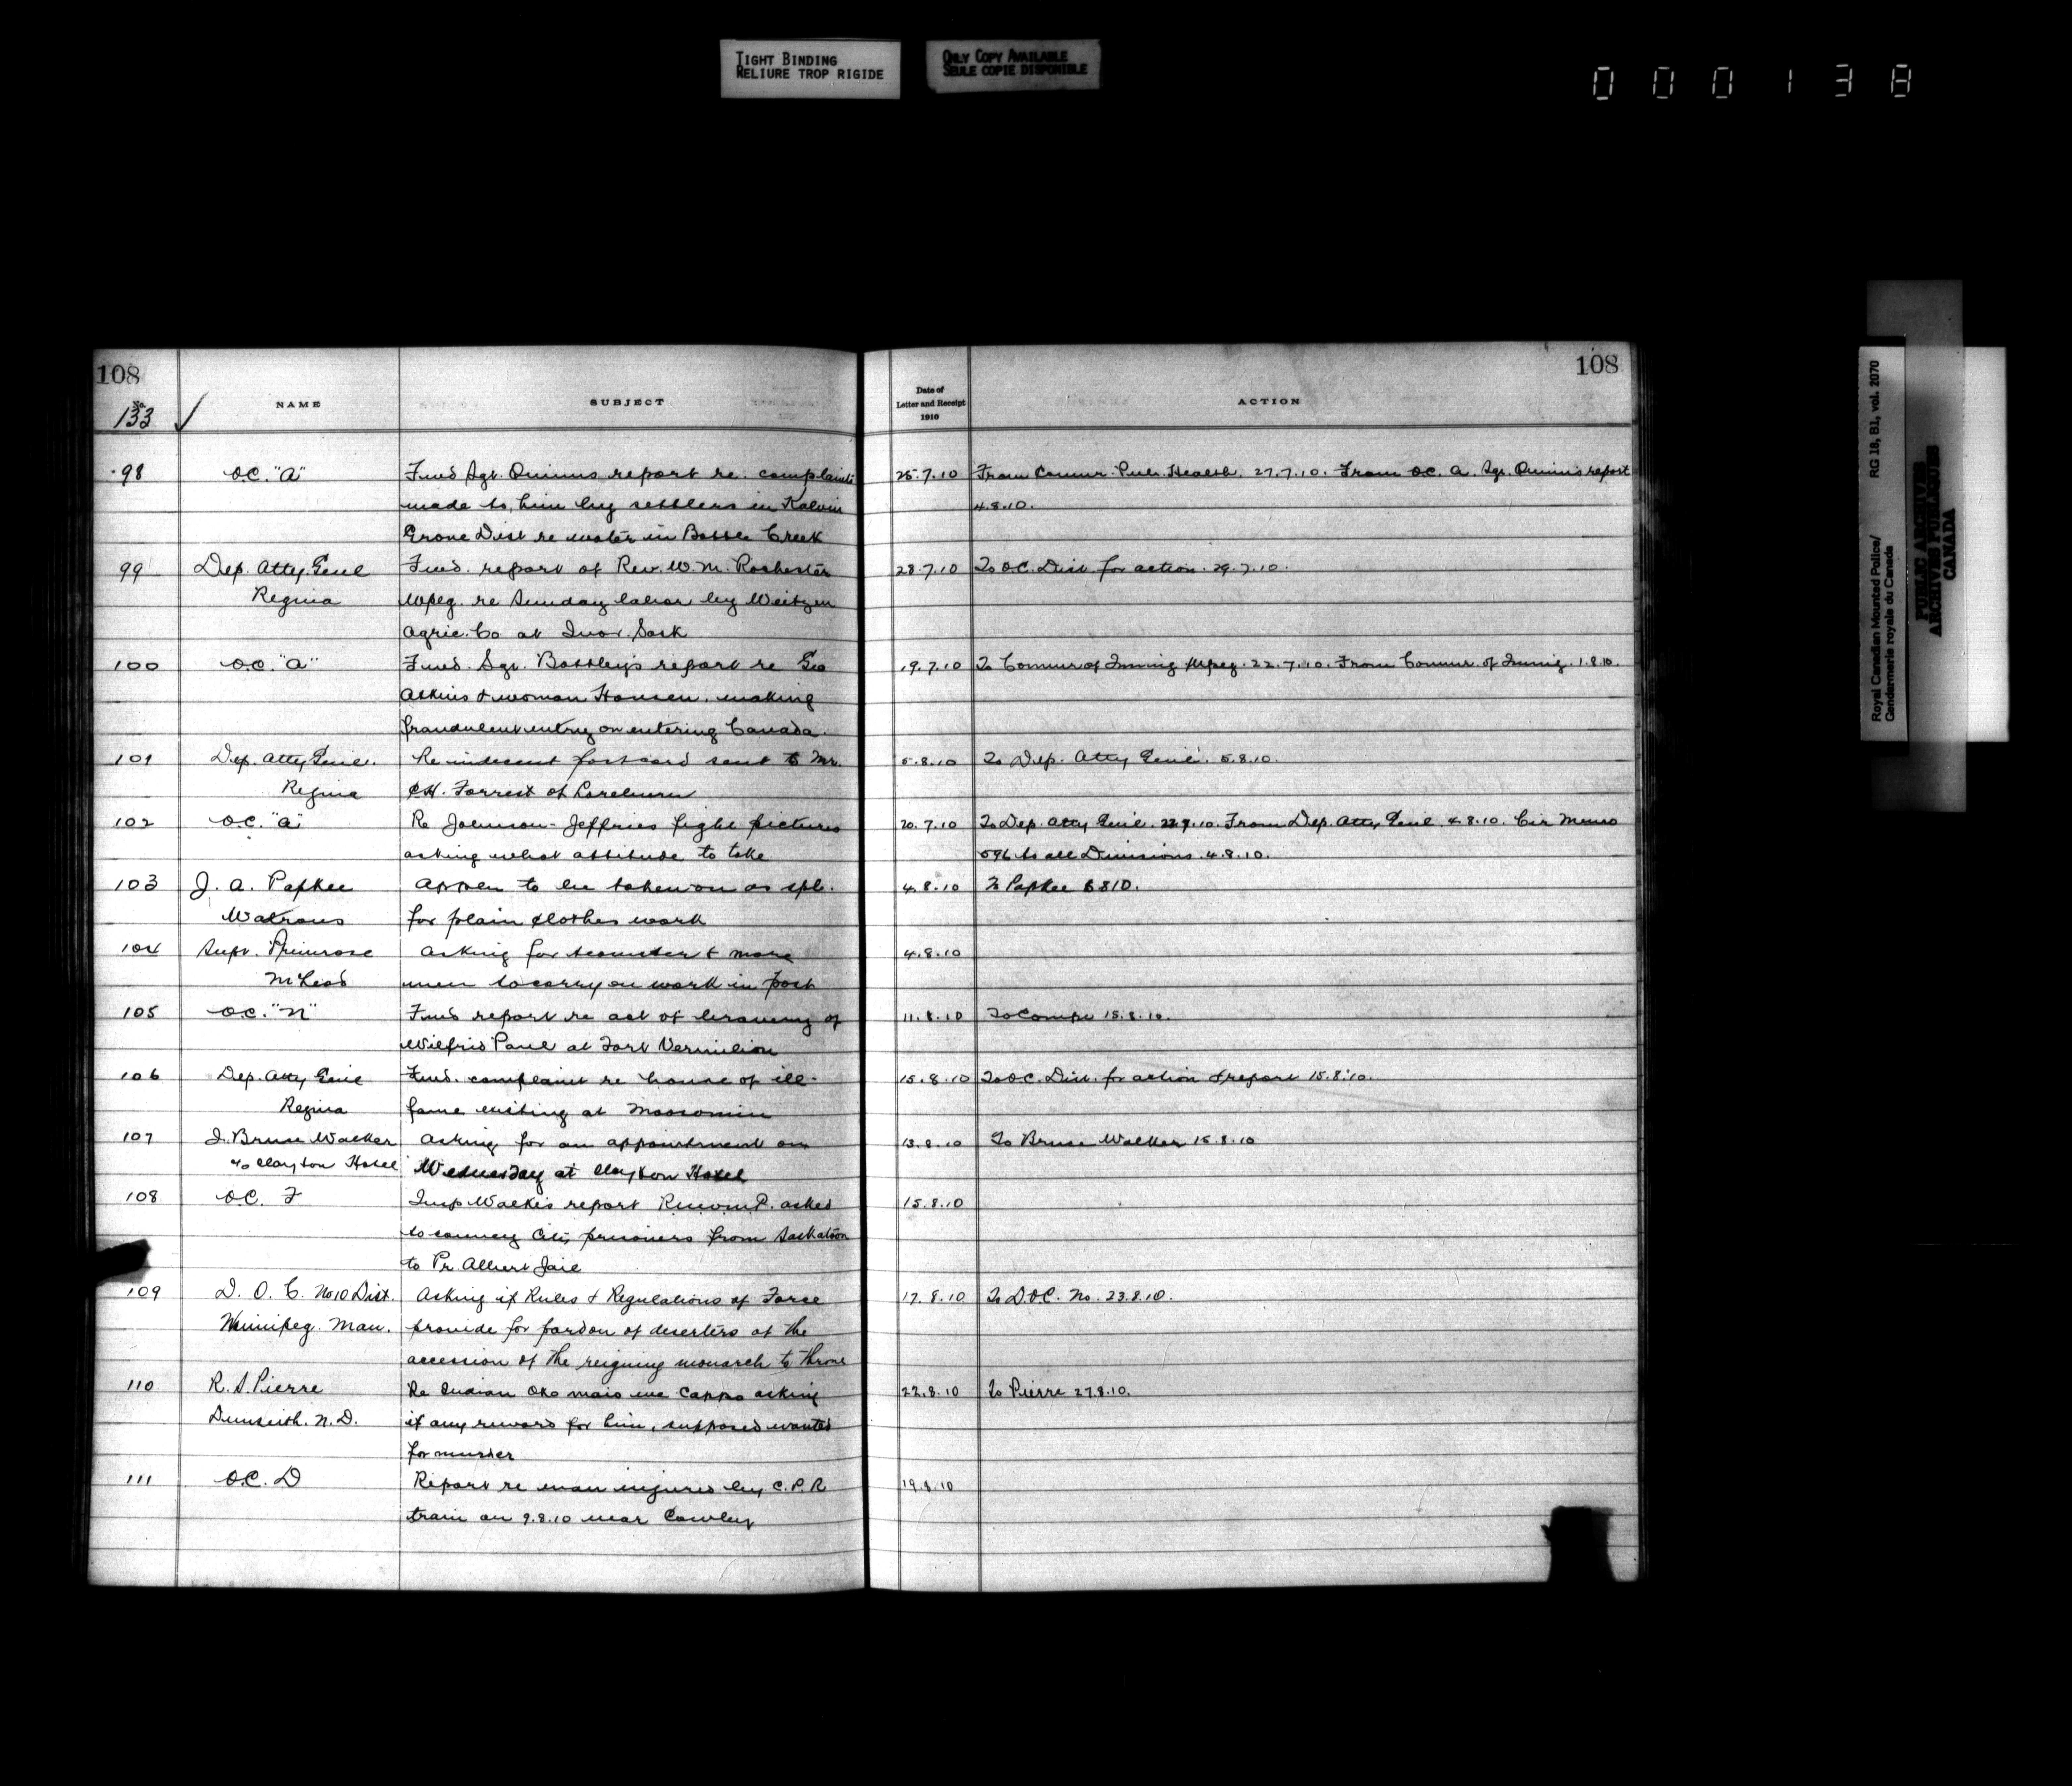 TIGHT BINDING
RELIURE TROP RIGIDE
ONLY COPY AVAILABLE
SEULE COPIE DISPONIBLE
000138
108
No.
133 ✓
NAME
SUBJECT
Date of
Letter and Receipt
1910
ACTION
108
98 O.C. "A" Fwd Sgt. Quinns report re. complaints 25.7.10 From Commr. Pub. Health. 27.7.10. From O.C. A. Sgt. Quinn's report
made to him by settlers in Kalvin 4.8.10.
Grove Dist re water in Battle Creek
99 Dep. Atty. Genl Fwd. report of Rev. W. M. Rochester 28.7.10 To O.C. Dist for action. 29.7.10.
Regina Wpeg. re Sunday labor by Weitzen
Agric. Co at Sask
100 O.C. "A" Fwd. Sgt. Battley's report re Geo 19.7.10 To Commr of Immig Wpeg. 22.7.10. From Commr. of Immig. 1.8.10.
Askins & woman Hansen. making
fraudulent entry on entering Canada.
101 Dep. Atty Genl. Re indecent postcard sent to Mr. 5.8.10 To Dep. Atty Genl. 5.8.10.
Regina C.H. Forrest of Loreburn
102 O.C. "A" Re Johnson-Jeffries fight pictures 20.7.10 To Dep. Atty Gen'l. From Dep. Atty Genl. 4.8.10. Cir Memo
asking what attitude to take 596 to all Divisions. 4.8.10.
103 J. A. Papkee Appln to be taken on as spl. 4.8.10 To Papkee 6810.
Watrous for plain clothes work
104 Supt. Primrose Asking for teamster & more 4.8.10
McLeod men to carry on work in post
105 O.C. "N" Fwd report re act of bravery of 11.8.10 To Compr 15.8.10.
Wilfrid Paul at Fort Vermilion
106 Dep. Atty Genl Fwd. complaint re house of ill- 15.8.10 To O.C. Dist. for action & report 15.8.10.
Regina fame existing at Moosomin
107 J. Bruce Walker Asking for an appointment on 13.8.10 To Bruce Walker 15.8.10
c/o Clayton Hotel Wednesday at Clayton Hotel
108 O.C. F Insp Walkes report R.N.W.M.P. asked 15.8.10
to convey City prisoners from Saskatoon
to Pr Albert Jail
109 D. O. C. No 10 Dist. Asking if Rules & Regulations of Force 17.8.10 To D.O.C. No. 23.8.10.
Winnipeg. Man. provide for pardon of deserters at the
accession of the reigning monarch to throne
110 R. S. Pierre Re Indian Cappo asking 22.8.10 To Pierre 27.8.10.
Dunseith. N.D. if any reward for him, supposed wanted
for murder
111 O.C. D Report re man injured by C.P.R 19.8.10
train on 9.8.10 near Cowley
Royal Canadian Mounted Police/ RG 18, B1, vol. 2070
Gendarmerie royale du Canada
PUBLIC ARCHIVES
ARCHIVES PUBLIQUES
CANADA